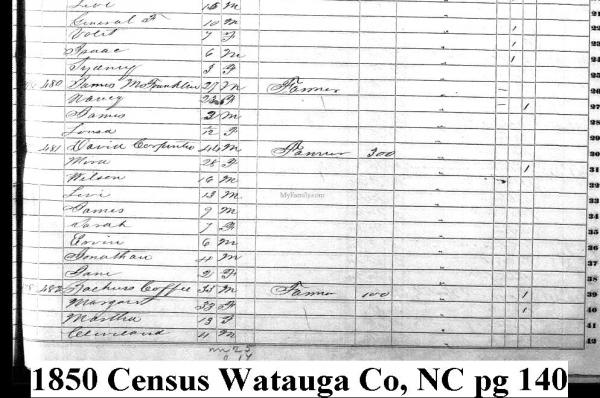 Levi 15 M
General F 10 M
Volit 7 F 22
Isaac 6 M 23
Sydney 3 F 25
480 James McFranklin 27 M Farmer 26
Nancy F 27
James 2 M
Lousa F 29
481 David Carpenter 44 M Farmer 300 30
Mira 28 F 31
Wilson 16 M 32
Levi 13 M 33
MyFamily.com
James 9 M 34
Sarah 7 F 35
Ervin 6 M 36
Jonathan 4 M 37
Jane 2 F 38
482 Coffee 35 M Farmer 100 1 39
Margaret 33 F 1 40
Martha 13 F 41
Cleiveland 11 M 42
1850 Census Watauga Co, NC pg 140